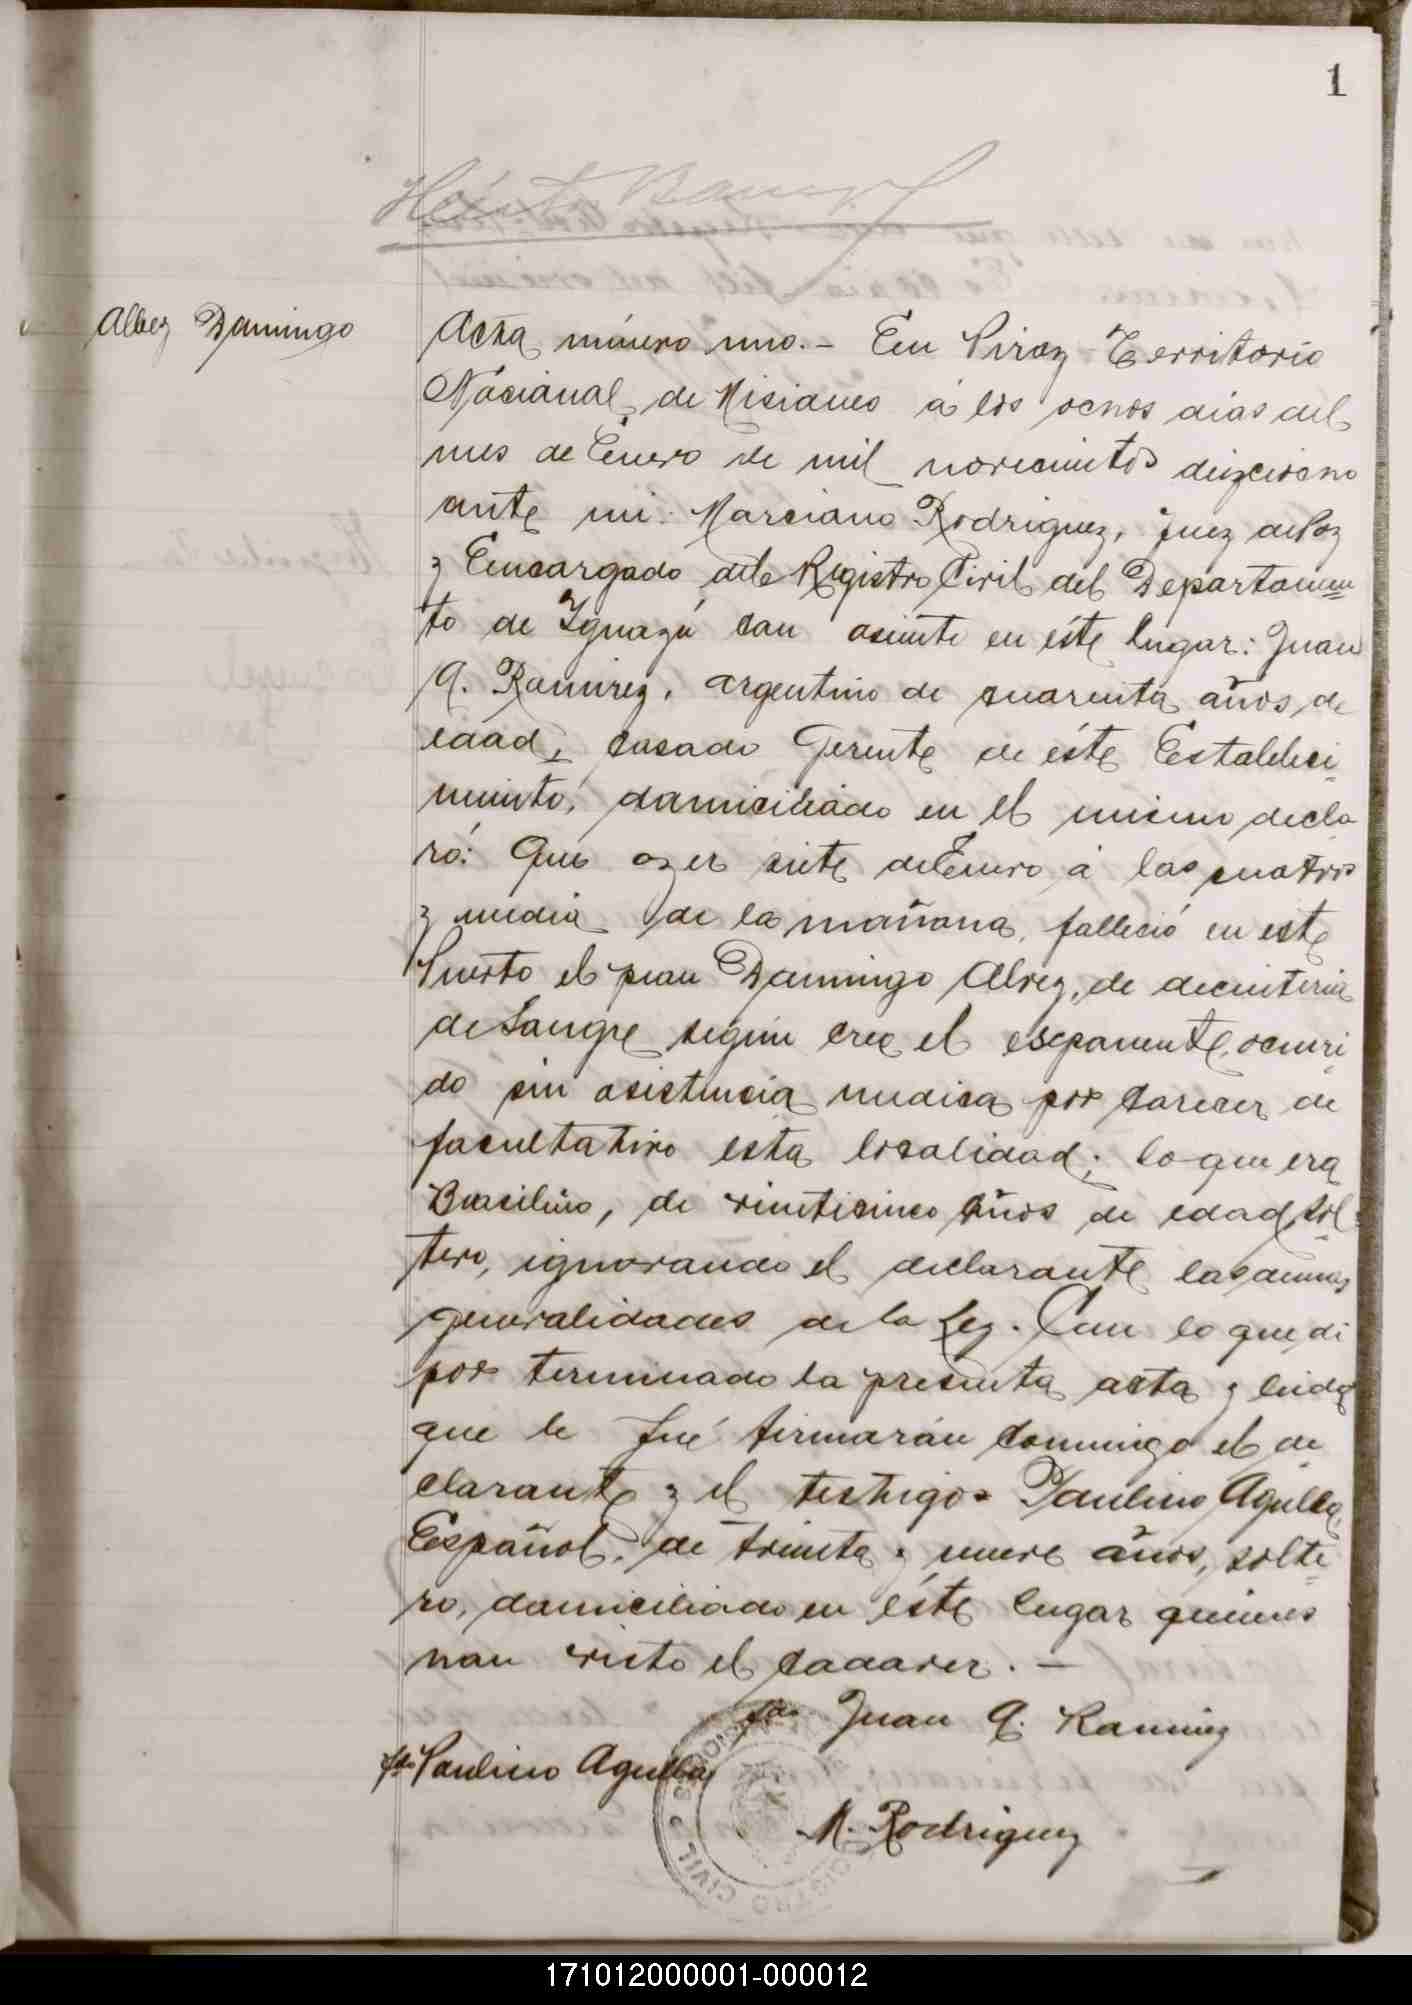 1
Albez Domingo
Acta número uno.- En Piray Territorio
Nácional de Misiones á los ochos dias del
mes de Enero de mil novecientos dieziocho
ante mi: Marciano Rodriguez, Juez de Paz
y Encargado del Registro Civil del Departamen
to de Iguazú con asiento en éste lugar: Juan
A. Ramirez, argentino de cuarenta años de
edad, casado Gerente de éste Estableci
miento, domiciliado en el mismo decla
ró: Que ayer siete de Enero á las cuatro
y media de la mañana, falleció en este
Puerto el peon Domingo Alvez, de decenteria
de Sangre según cree el esponente, ocurri
do sin asistencia medica por carecer de
facultativo esta localidad; lo que era
Brasileño, de veinticinco años de edad, sol
tero, ignorando el declarante las demas
generalidades de la Ley. Con lo que di
por terminado la presenta acta y leida
que le fué firmarán conmigo el de
clarante y el testigo Paulino Agulla,
Español, de treinta y nueve años, solte
ro, domiciliado en éste lugar quienes
han visto el cadaver.-
fdo Juan A. Ramirez
fdo Paulino Agulla
M. Rodriguez
REGISTRO CIVIL MISIONES
171012000001-000012